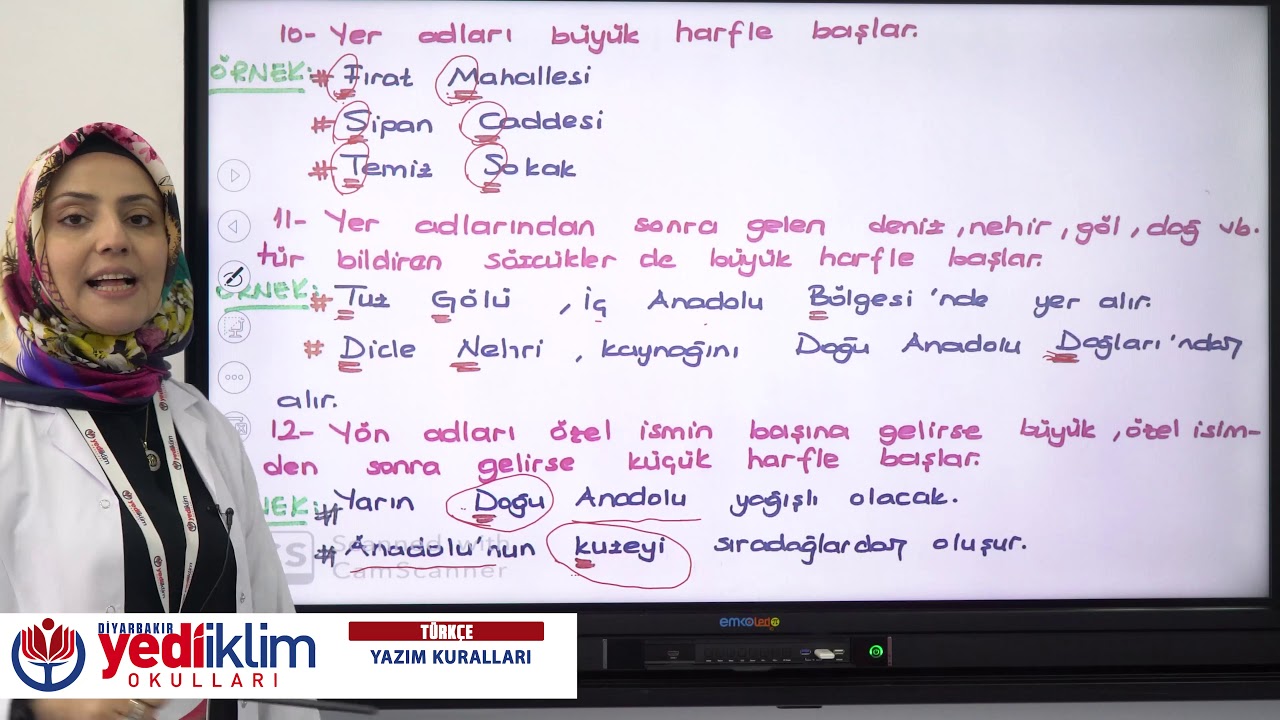 10- Yer adları büyük harfle başlar.
ÖRNEK: # Fırat Mahallesi
# Sipan Caddesi
# Temiz Sokak
11- Yer adlarından sonra gelen deniz, nehir, göl, dağ vb.
tür bildiren sözcükler de büyük harfle başlar.
ÖRNEK: # Tuz Gölü, İç Anadolu Bölgesi'nde yer alır.
# Dicle Nehri, kaynağını Doğu Anadolu Dağları'ndan
alır.
12- Yön adları özel ismin başına gelirse büyük, özel isim-
den sonra gelirse küçük harfle başlar.
NEK: # Yarın Doğu Anadolu yağışlı olacak.
# Anadolu'nun kuzeyi sıradağlardan oluşur.
CS Scanned with
CamScanner
emkoLed
DİYARBAKIR
yediiklim
OKULLARI
TÜRKÇE
YAZIM KURALLARI
yediiklim